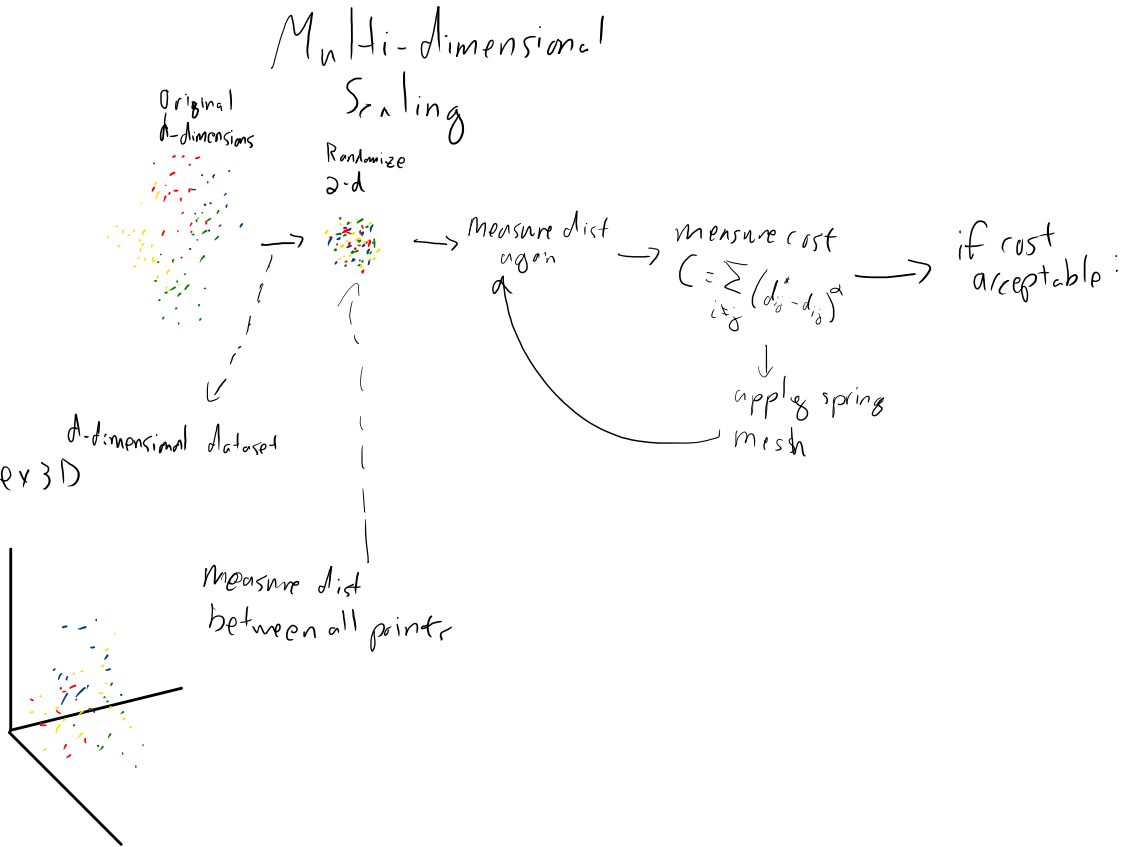 Multi-dimensional
Scaling
Original
d-dimensions
Randomize
2-d
measure dist
again
measure cost
C = Σ (d*ij - dij)²
i≠j
if cost
acceptable:
apply spring
mesh
d-dimensional dataset
ex 3D
measure dist
between all points